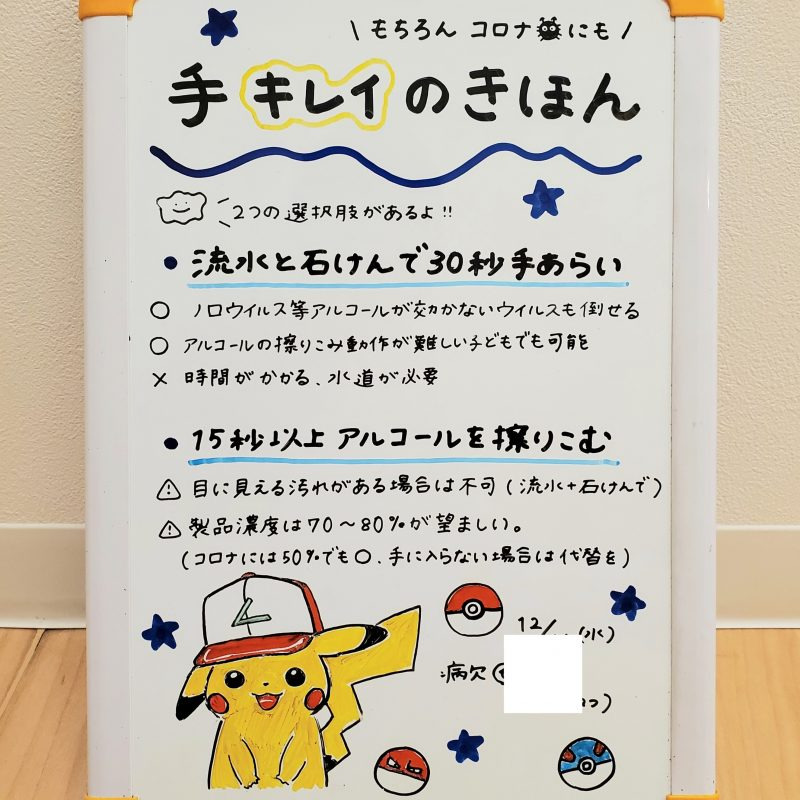 \ もちろん コロナにも /
手キレイのきほん
2つの選択肢があるよ!!
● 流水と石けんで30秒手あらい
○ ノロウイルス等アルコールが効かないウイルスも倒せる
○ アルコールの擦りこみ動作が難しい子どもでも可能
× 時間がかかる、水道が必要
● 15秒以上アルコールを擦りこむ
⚠ 目に見える汚れがある場合は不可(流水+石けんで)
⚠ 製品濃度は70~80%が望ましい。
(コロナには50%でも○、手に入らない場合は代替を)
12/ (水)
病欠